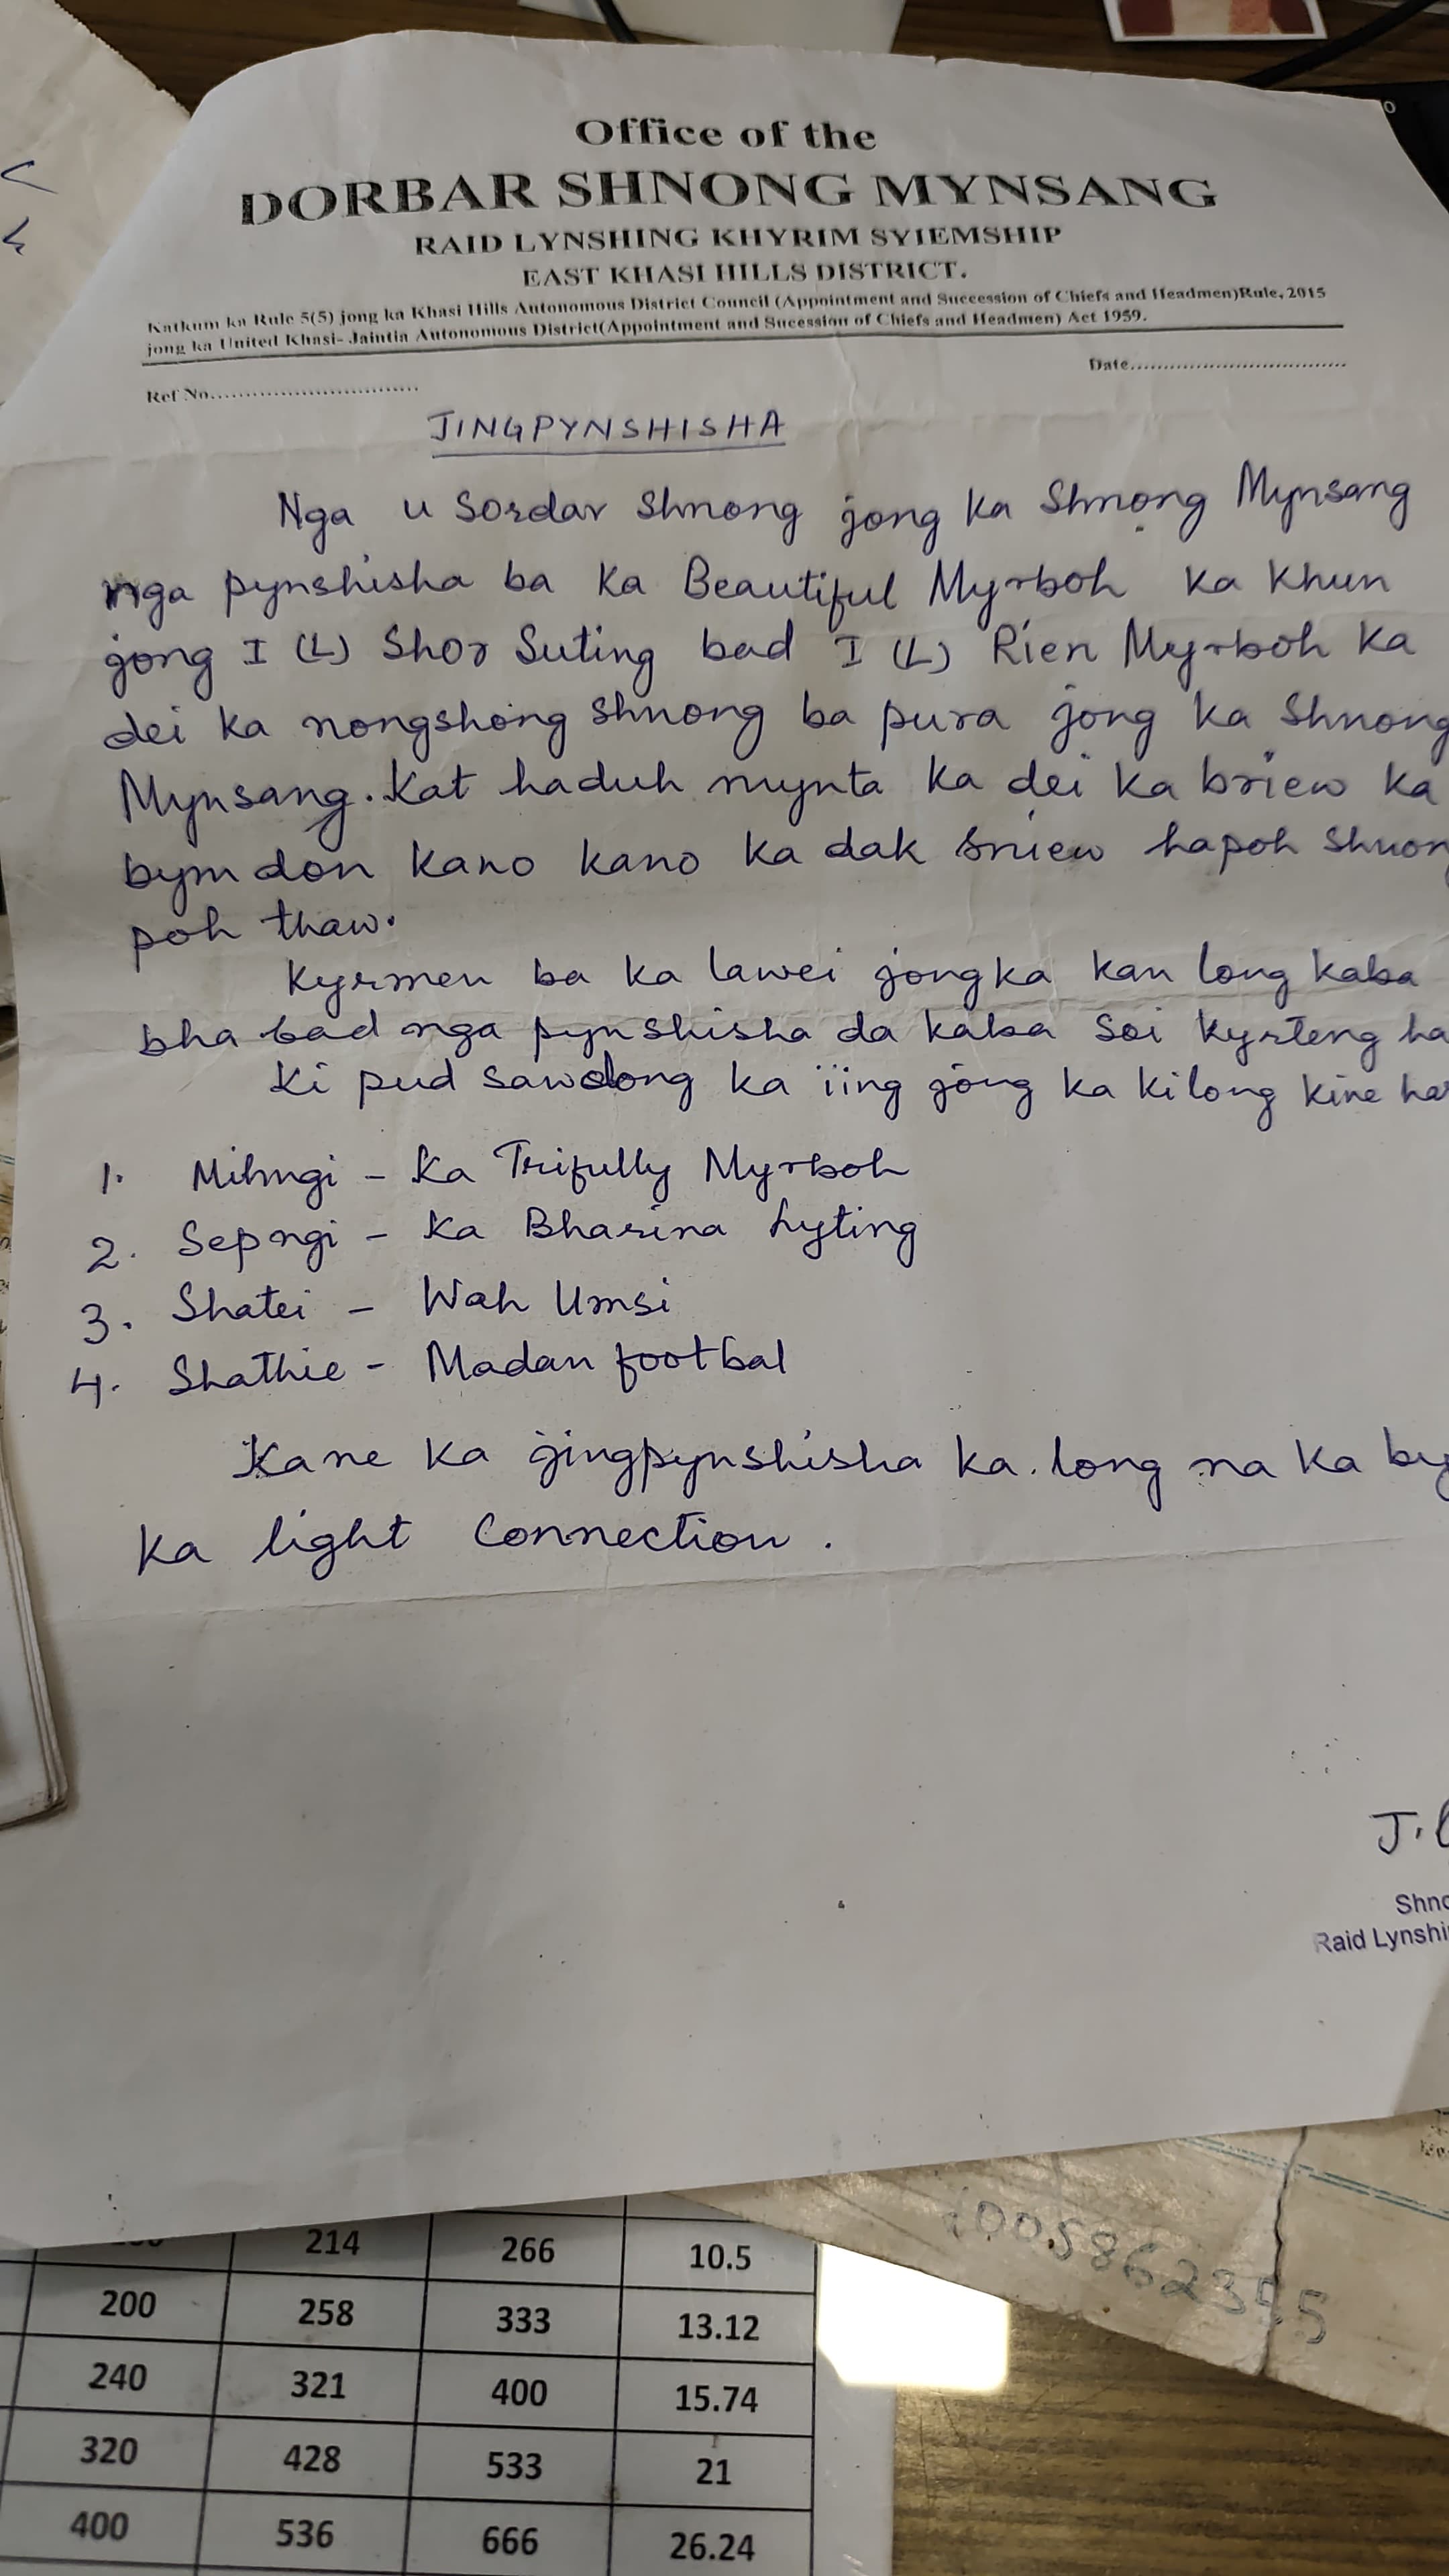 Office of the
DORBAR SHNONG MYNSANG
RAID LYNSHING KHYRIM SYIEMSHIP
EAST KHASI HILLS DISTRICT.
Katkum ka Rule 5(5) jong ka Khasi Hills Autonomous District Council (Appointment and Succession of Chiefs and Headmen)Rule, 2015
jong ka United Khasi- Jaintia Autonomous District(Appointment and Sucession of Chiefs and Headmen) Act 1959.
Date....................................
Ref No...............................
JINGPYNSHISHA
Nga u Sordar Shnong jong ka Shnong Mynsang
nga pynshisha ba ka Beautiful Myrboh ka khun
jong I (L) Shor Suting bad I (L) Rien Myrboh ka
dei ka nongshong shnong ba pura jong ka Shnong
Mynsang. Kat haduh mynta ka dei ka briew ka
bym don kano kano ka dak sniew hapoh
poh thaw.
Kyrmen ba ka lawei jongka kan long kaba
bha bad nga pynshisha da kaba soi kyrteng
Ki pud sawdong ka iing jong ka ki long kine
1. Mihngi - Ka Trifully Myrboh
2. Sepngi - Ka Bharina Lyting
3. Shatei - Wah Umsi
4. Shathie - Madan footbal
Kane ka jingpynshisha ka long na ka
ka light Connection.
J.
Raid
214 266 10.5
200 258 333 13.12
240 321 400 15.74
320 428 533 21
400 536 666 26.24